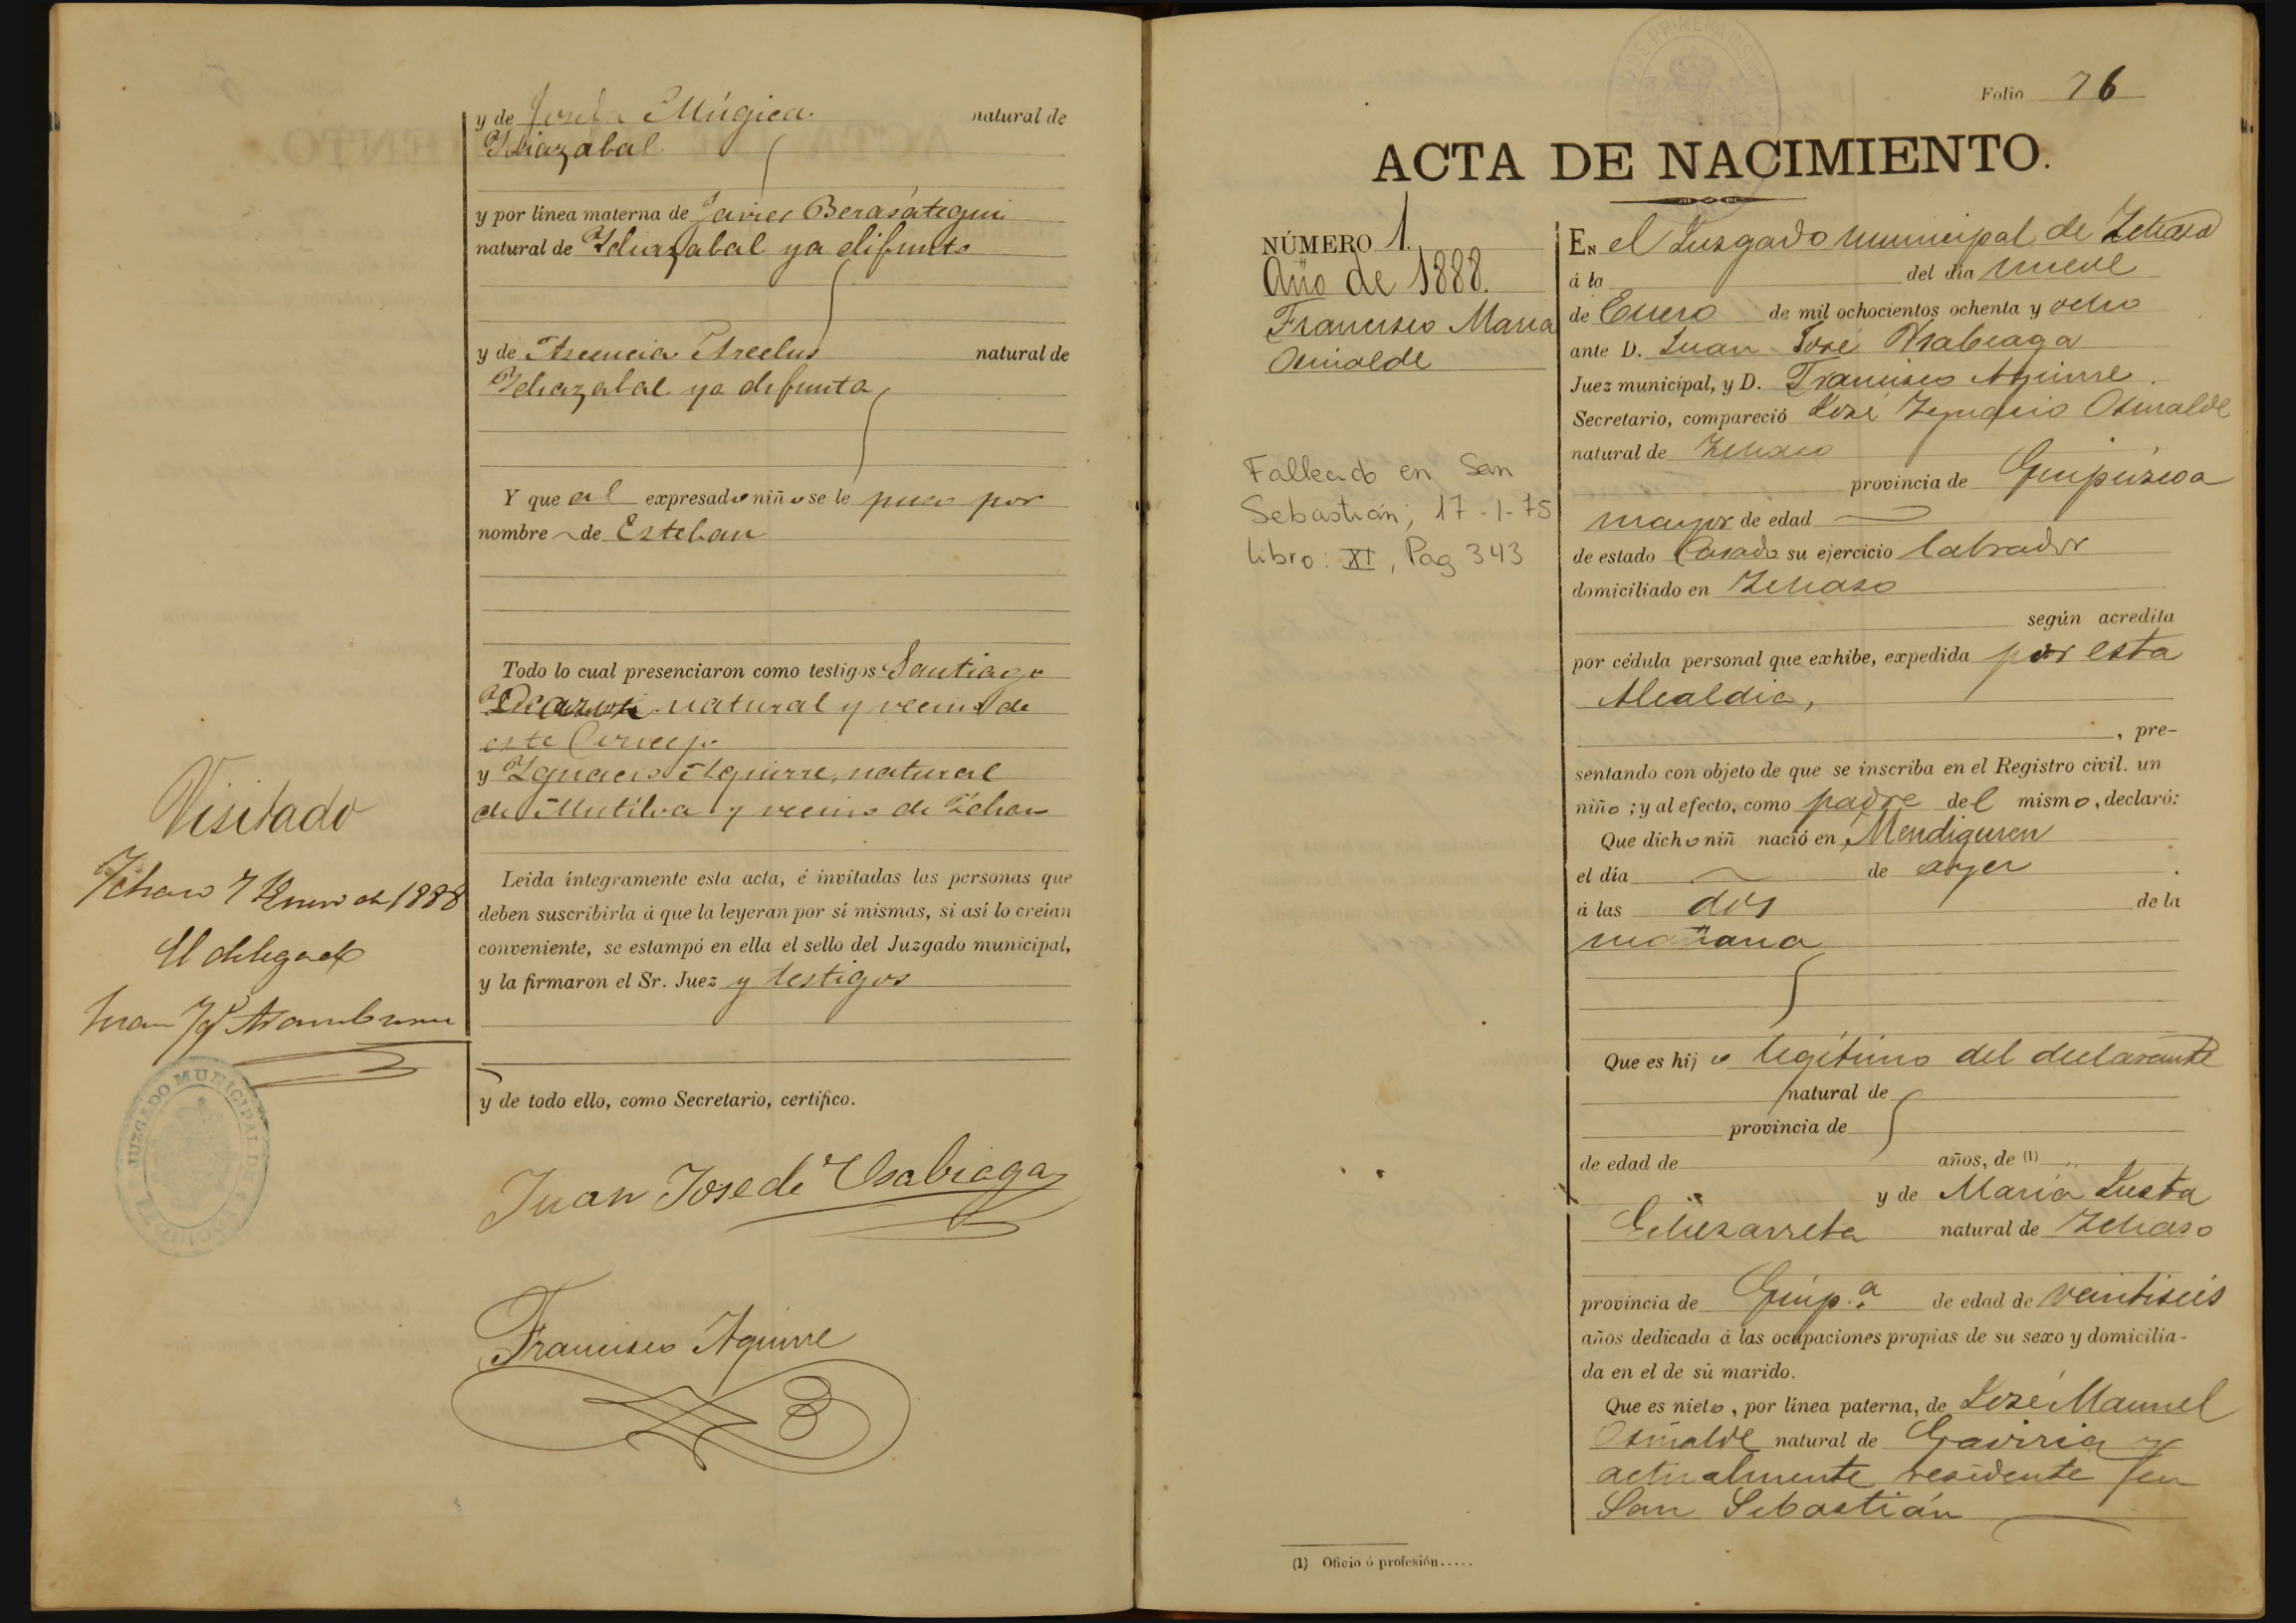 y de Josefa Múgica natural de
Idiazabal
y por línea materna de Javier Berasátegui
natural de Idiazabal ya difunto
y de Ascencia Arcelus natural de
Idiazabal ya difunta
Y que al expresado niño se le puso por
nombre de Esteban
Todo lo cual presenciaron como testigos Santiago
natural y vecino de
este Concejo
y Ignacio Aguirre, natural
de Mutiloa y vecino de Ichaso
Leida íntegramente esta acta, é invitadas las personas que
deben suscribirla á que la leyeran por sí mismas, si así lo creían
conveniente, se estampó en ella el sello del Juzgado municipal,
y la firmaron el Sr. Juez y testigos
y de todo ello, como Secretario, certifico.
Juan Jose de Usabiaga
Francisco Aguirre
Visitado
Ichaso 7 Enero de 1888
El delegado
Juan Aramburu
JUZGADO MUNICIPAL DE
Folio 76
ACTA DE NACIMIENTO.
NÚMERO 1.
Año de 1888.
Francisco Maria
Osinalde
Fallecido en San
Sebastián, 17-1-75
libro: XI, Pag 343
En el Juzgado municipal de Ichaso
á la del día nueve
de Enero de mil ochocientos ochenta y ocho
ante D. Juan José Usabiaga
Juez municipal, y D. Francisco Aguirre
Secretario, compareció José Ygnacio Osinalde
natural de Ichaso
provincia de Guipúzcoa
mayor de edad
de estado Casado su ejercicio labrador
domiciliado en Ichaso
según acredita
por cédula personal que exhibe, expedida por esta
Alcaldia,
, pre-
sentando con objeto de que se inscriba en el Registro civil. un
niño; y al efecto, como padre del mismo, declaró:
Que dicho niñ nació en Mendiguren
el día de ayer
á las dos de la
mañana
Que es hijo legítimo del declarante
natural de
provincia de
de edad de años, de (1)
y de María Justa
Echezarreta natural de Ichaso
provincia de Guip.a de edad de veintiseis
años dedicada á las ocupaciones propias de su sexo y domicilia-
da en el de su marido.
Que es nieto, por línea paterna, de José Manuel
Osinalde natural de Gaviria y
actualmente residente en
San Sebastián
(1) Oficio ó profesión.....